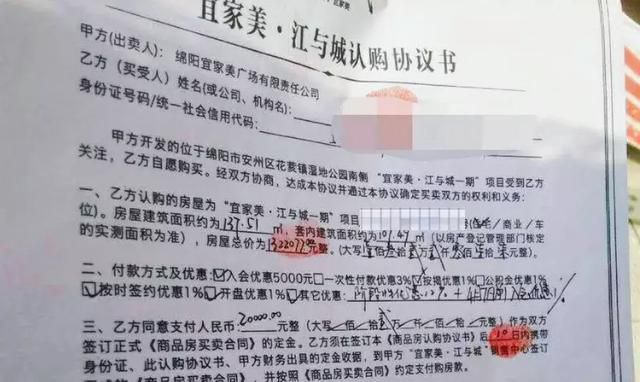 宜家美·江与城认购协议书
甲方(出卖人): 绵阳宜家美广场有限责任公司
乙方(买受人)姓名(或公司、机构名):
身份证号码/统一社会信用代码:
甲方开发的位于绵阳市安州区花荄镇湿地公园南侧 "宜家美·江与城一期" 项目受到乙方
关注,乙方自愿购买。经双方协商,达成本协议并通过本协议确定买卖双方的权利和义务:
一、乙方认购的房屋为 "宜家美·江与城一期" 项目 (住宅/商业/车
位)。房屋建筑面积约为137.51㎡,套内建筑面积约为107.49㎡(以房产登记管理部门核定
的实测面积为准),房屋总价为 元整。(大写
二、付款方式及优惠:☑入会优惠5000元□一次性付款优惠3%□按揭优惠1%□公积金优惠1%
☑按时签约优惠1%□开盘优惠1%□其它优惠:
三、乙方同意支付人民币:20000.00元整(大写 佰 拾贰万 仟 佰 拾 元整)作为双方
签订正式《商品房买卖合同》的定金。乙方须在签订本《商品房认购协议书》后10日内携带
身份证、此认购协议书、甲方财务出具的定金收据,到甲方 "宜家美·江与城" 销售中心签订
房买卖合同》,并按照《商品房买卖合同》约定支付购房款。